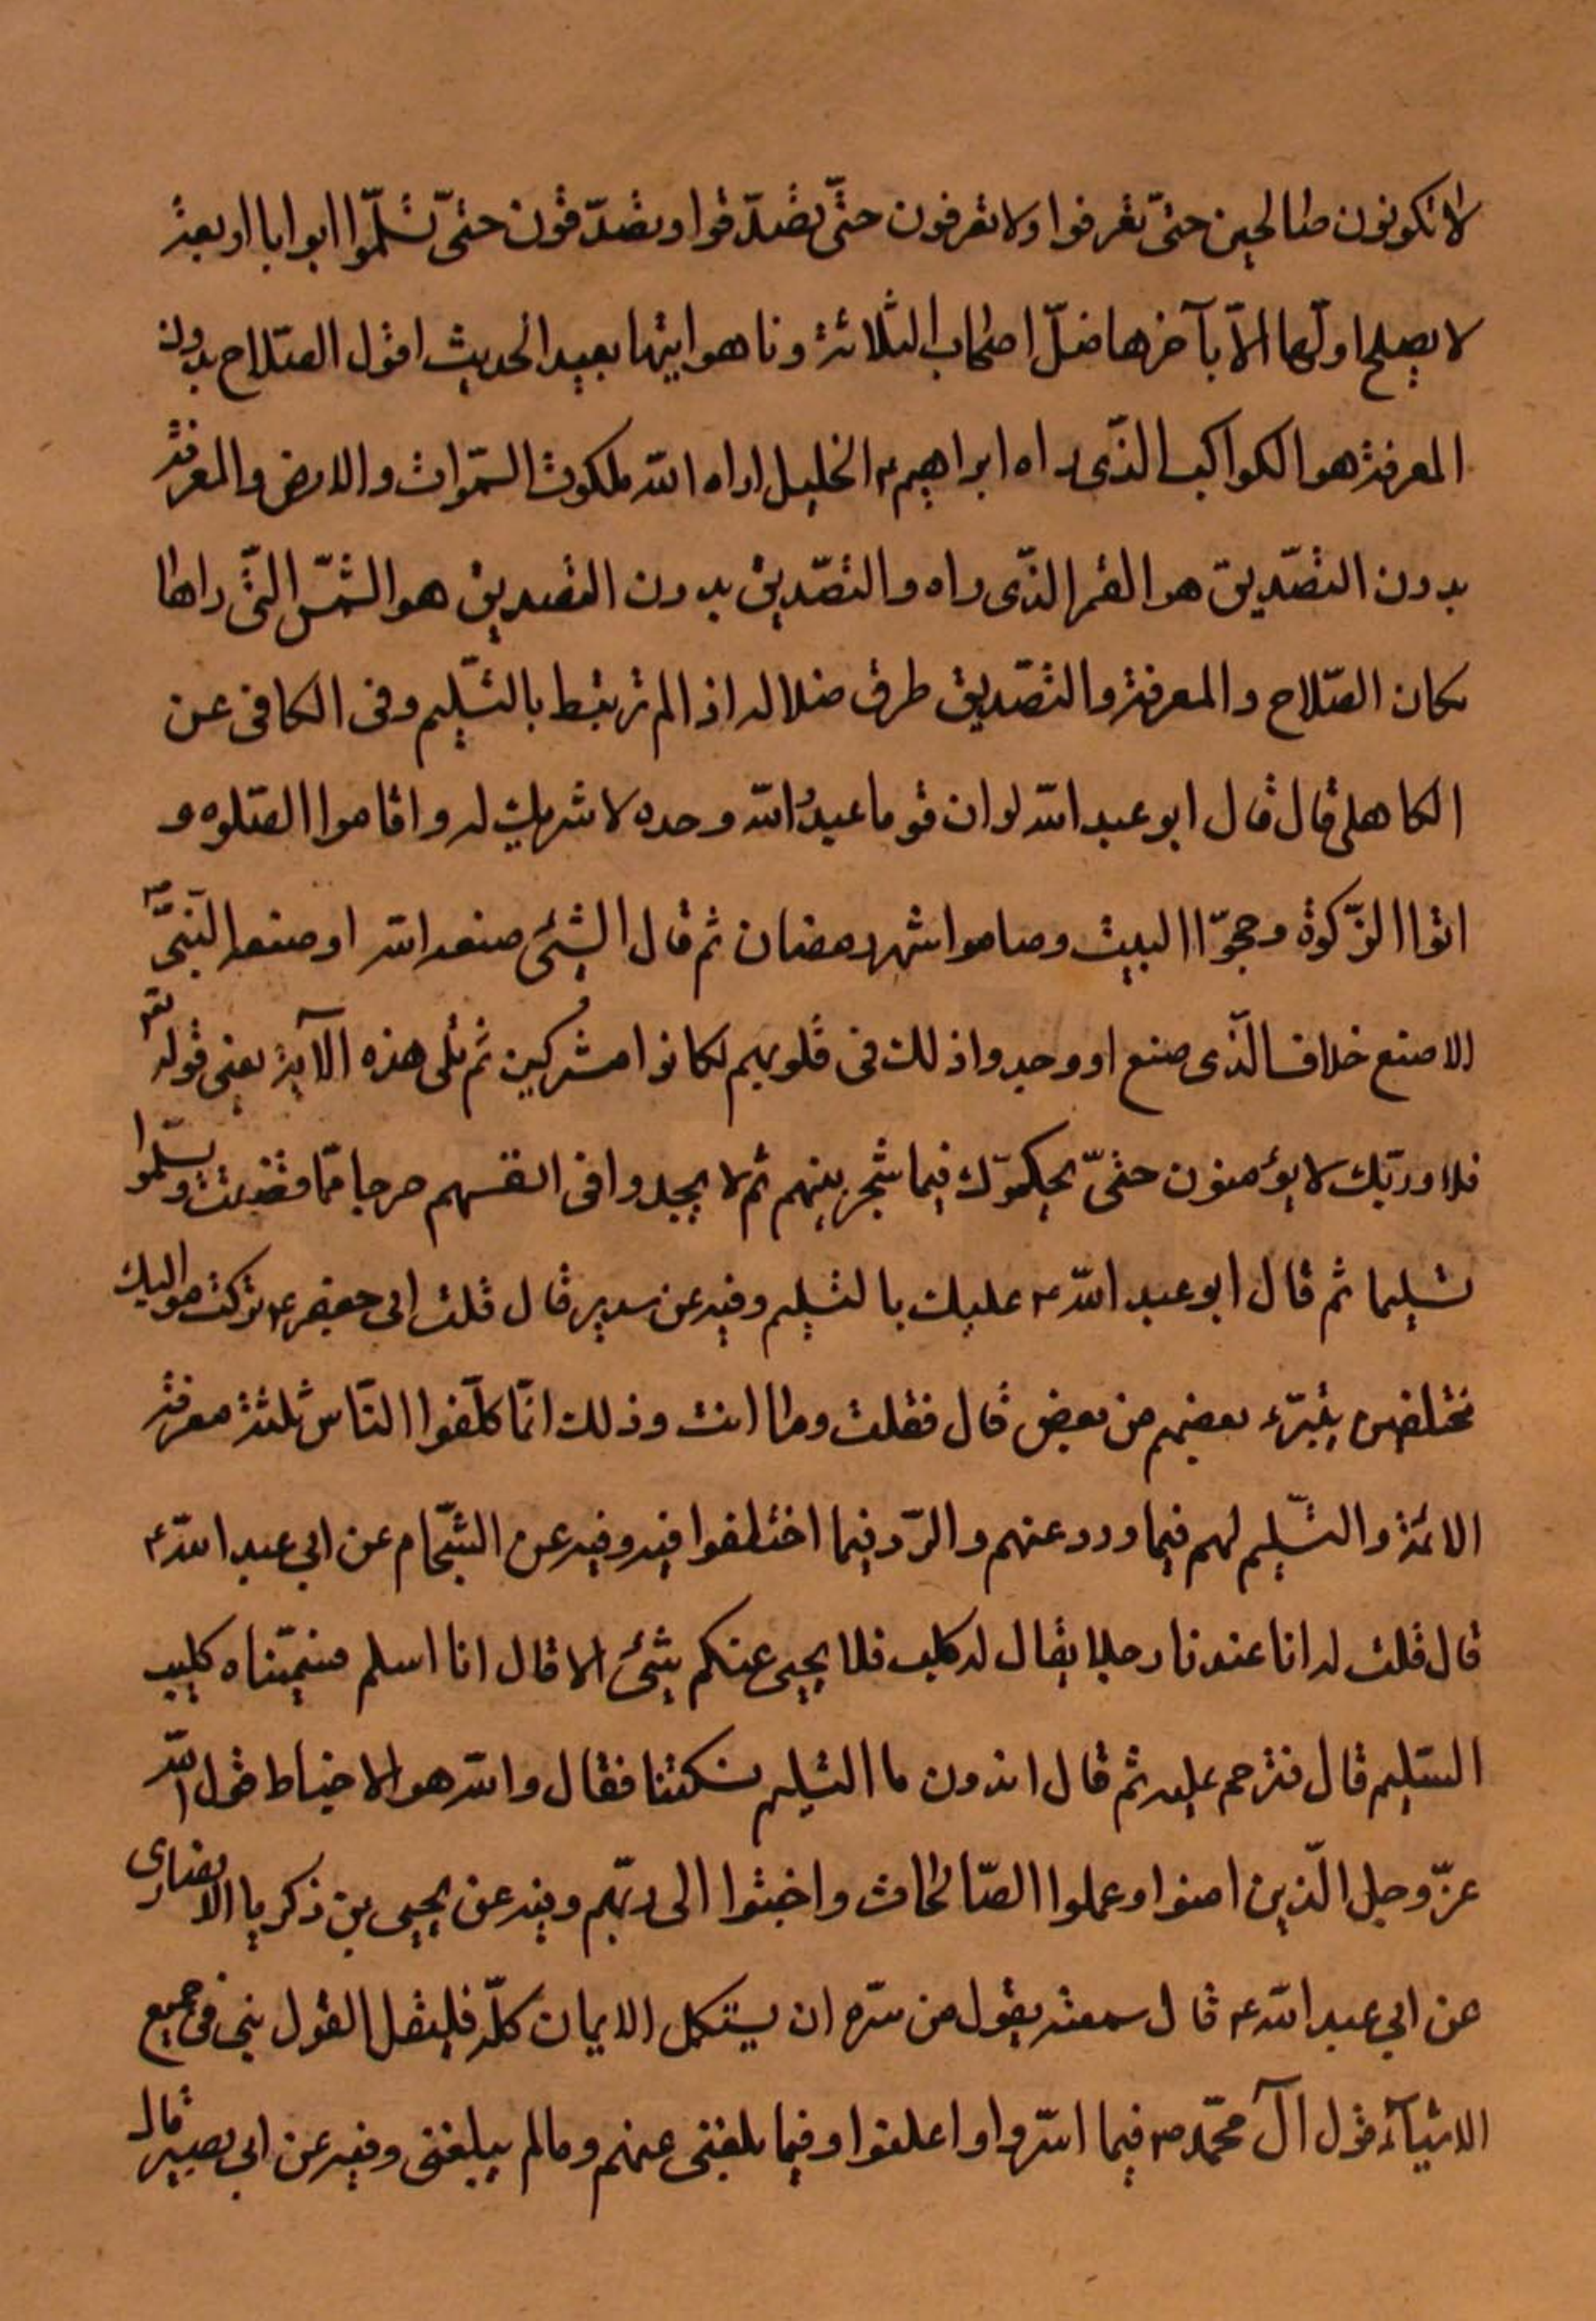 لا تكونون صالحين حتّى تعرفوا ولا تعرفون حتّى تصدّقوا وتصدّقون حتّى تسلّموا ابوابا اربعة
لا يصلح اولها الاّ بآخرها ضلّ اصحاب الثلاثة وتاهوا تيها بعيد الحديث اقول الصّلاح بدون
المعرفة هو الكواكب الذّى راه ابراهيم ؑ الخليل اراه الله ملكوت السّموات والارض والمعرفة
بدون التصّديق هو القمر الذّى راه والتصّديق بدون التصديق هو الشّمس التّى راها
كان الصّلاح والمعرفة والتصّديق طرق ضلاله اذا لم ترتبط بالتسّليم وفى الكافى عن
الكاهلى قال قال ابو عبد الله لو ان قوما عبدُ الله وحده لا شريك له واقاموا الصّلوه و
اتوا الزّكوة وحجّوا البيت وصاموا شهر رمضان ثم قال الشئى صنعه الله او صنعه النّبىّ ص
الا صنع خلاف الّذى صنع او وجدوا ذلك فى قلوبهم لكانوا مشركين ثم تلى هذه الآية يعنى قوله تعـ
فلا وربّك لا يؤمنون حتّى يحكمّوك فيما شجر بينهم ثم لا يجدوا فى انفسهم حرجا ممّا قضيت ويسلّموا
تسليما ثم قال ابو عبد الله ؑ عليك بالتسليم وفيه عن سدير قال قلت ابى جعفر ؑ تركت مواليك
مختلفين يتبرّء بعضهم من بعض قال فقلت وما انت وذلك انمّا كلّفوا النّاس ثلثة معرفة
الائمة والتسّليم لهم فيما ورد عنهم والرّد فيما اختلفوا فيه وفيه عن الشّحام عن ابى عبد الله ؑ
قال قلت له انا عندنا رجلا يقال له كليب فلا يجيى عنكم شئى الا قال انا اسلم فسّميناه كليب
التسّليم قال فترحم عليه ثم قال اتدرون ما التسليم فسكتنا فقال والله هو الاخباط قول الله
عزّ وجل الّذين امنوا وعملوا الصّالحات واخبتوا الى ربّهم وفيه عن يحيى بن ذكريا الانصارى
عن ابى عبد الله ؑ قال سمعته يقول من سرّه ان يستكمل الايمان كلّه فليقل القول نبى فى جميع
الاشيآء قول آل محمّد ص فيما اسّروا واعلنوا وفيما بلغنى عنهم وما لم يبلغنى وفيه عن ابى بصير قال